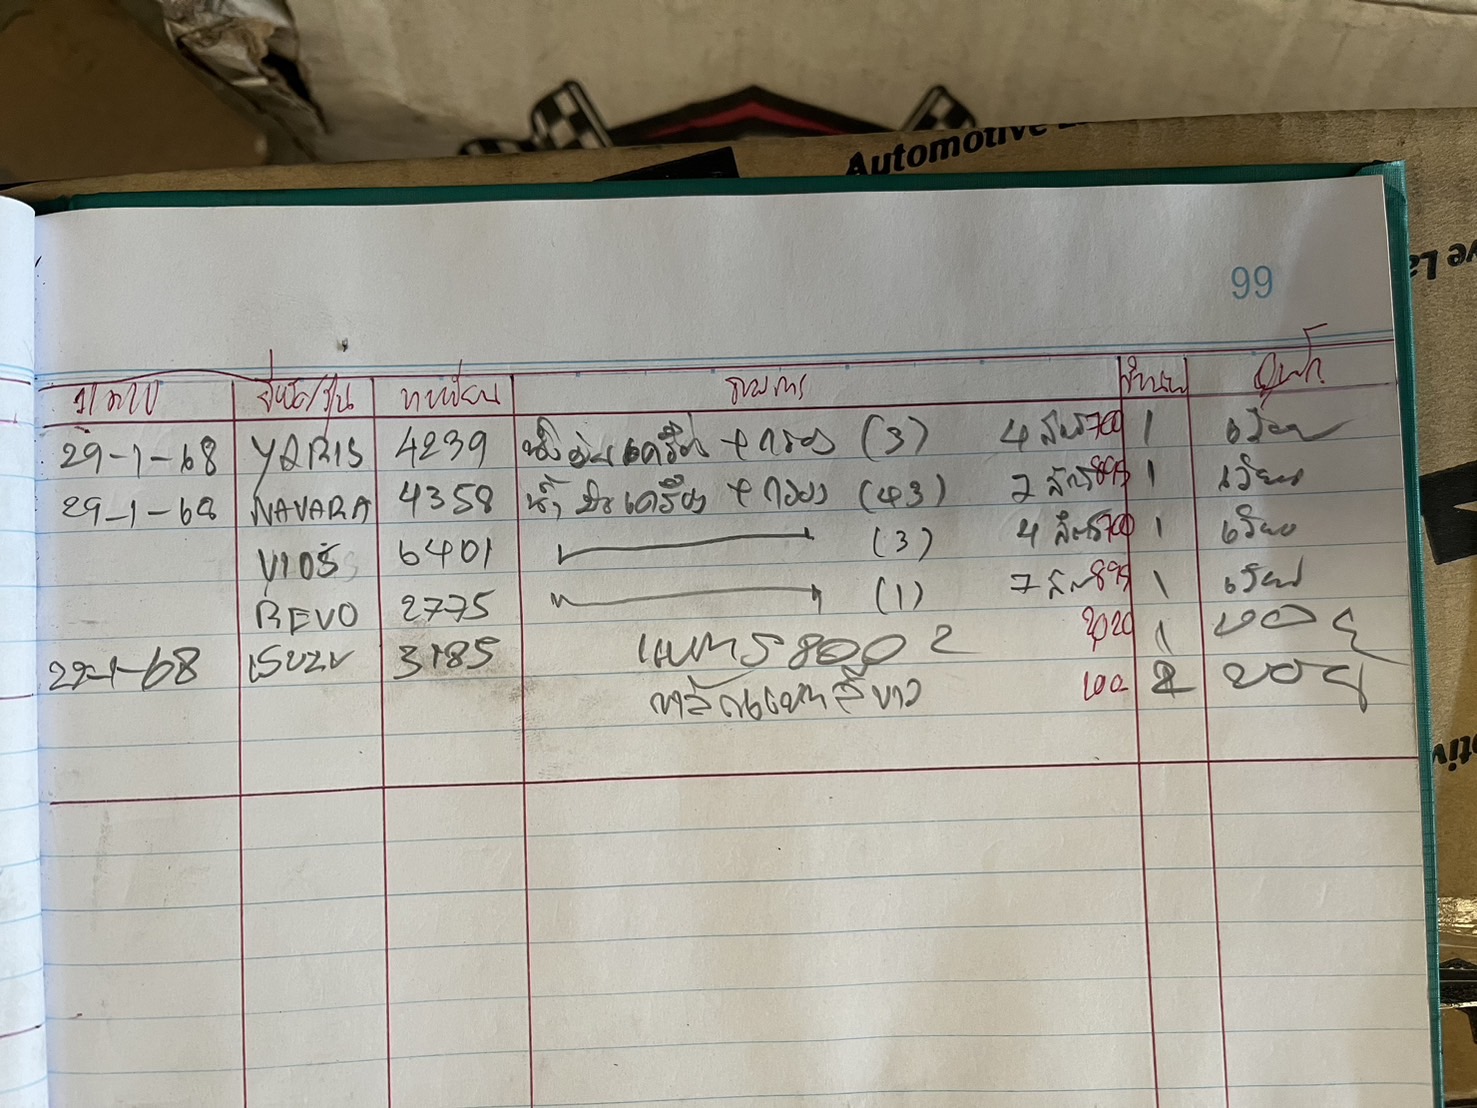 Automotive La
99
ว/ด/ป ยี่ห้อ/รุ่น ทะเบียน รายการ จำนวน ผู้เบิก
29-1-68 YARIS 4239 น้ำมันเครื่อง + กรอง (3) 4 ลิตร 700 1 เวียน
29-1-68 NAVARA 4358 น้ำมันเครื่อง + กรอง (43) 7 ลิตร 895 1 เวียน
VIOS 6401 (3) 4 ลิตร 700 1 เวียน
REVO 2775 (1) 7 ลิตร 895 1 เวียน
29-1-68 ISUZU 3185 แบตฯ 800 2020 1
100 2